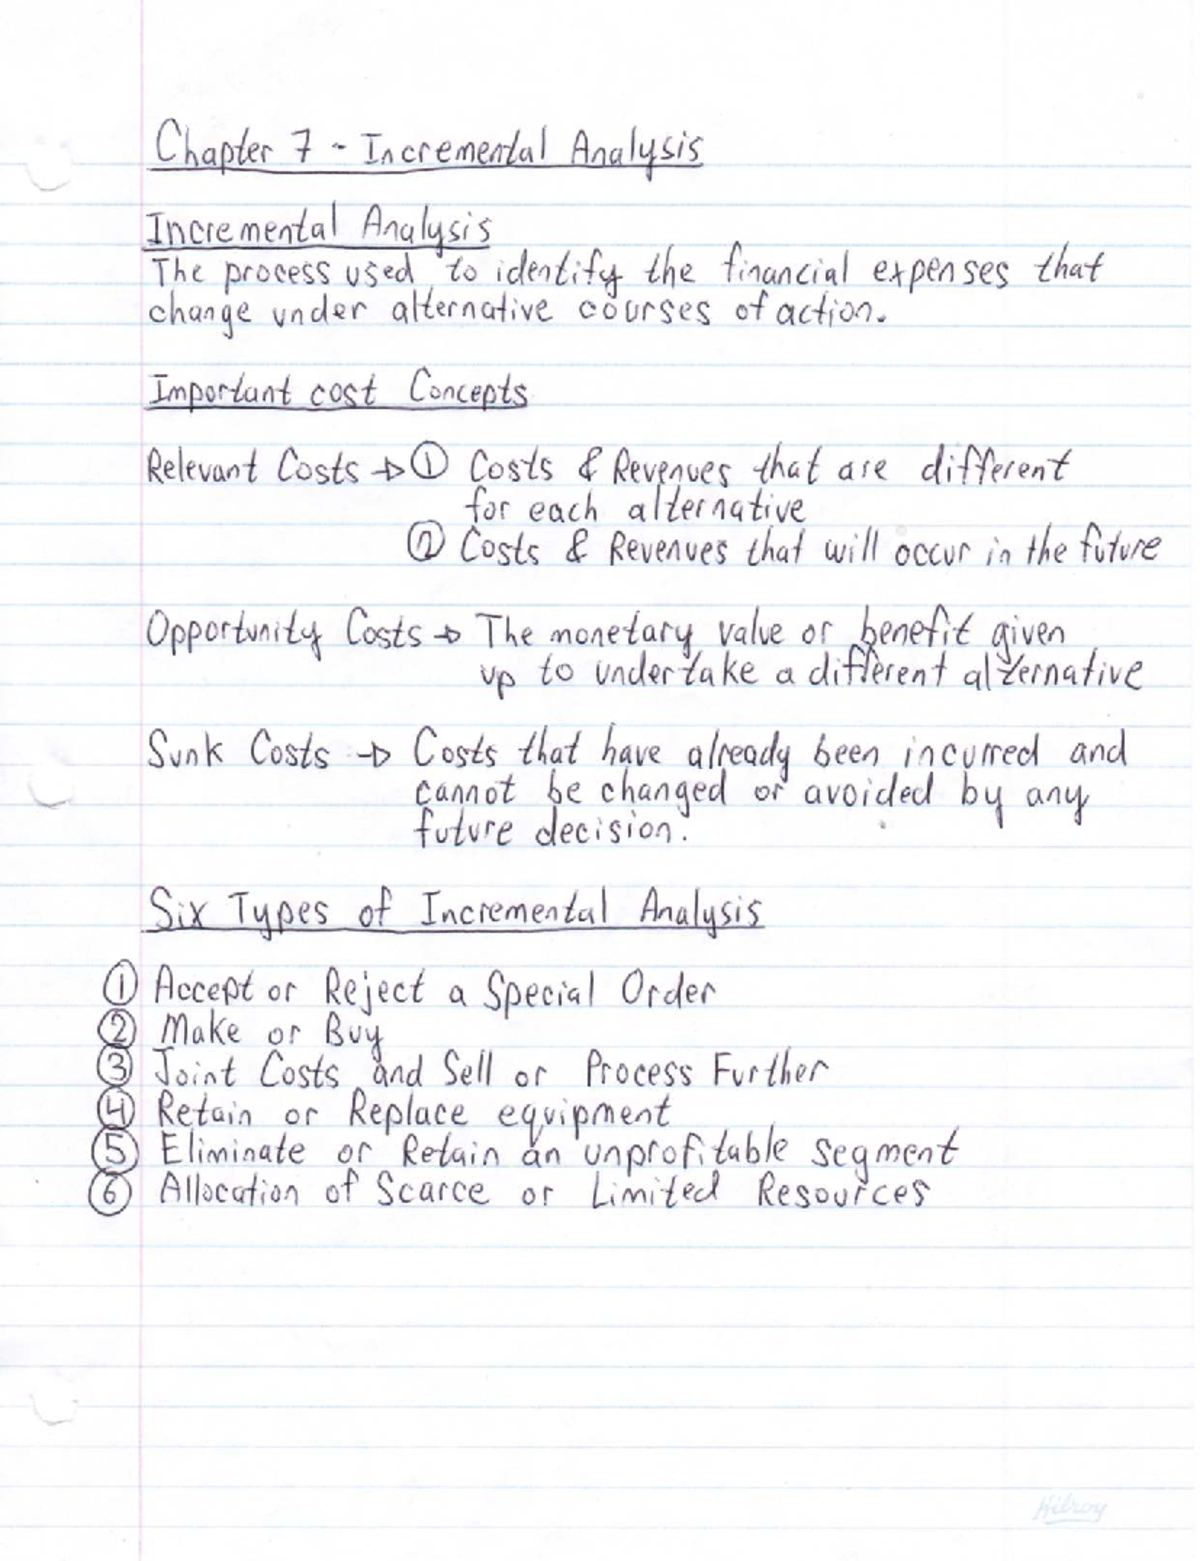 Chapter 7 - Incremental Analysis
Incremental Analysis
The process used to identify the financial expenses that
change under alternative courses of action.
Important cost Concepts
Relevant Costs → ① Costs & Revenues that are different
for each alternative
② Costs & Revenues that will occur in the future
Opportunity Costs → The monetary value or benefit given
up to undertake a different alternative
Sunk Costs → Costs that have already been incurred and
cannot be changed or avoided by any
future decision.
Six Types of Incremental Analysis
① Accept or Reject a Special Order
② Make or Buy
③ Joint Costs and Sell or Process Further
④ Retain or Replace equipment
⑤ Eliminate or Retain an unprofitable segment
⑥ Allocation of Scarce or Limited Resources
Hilroy